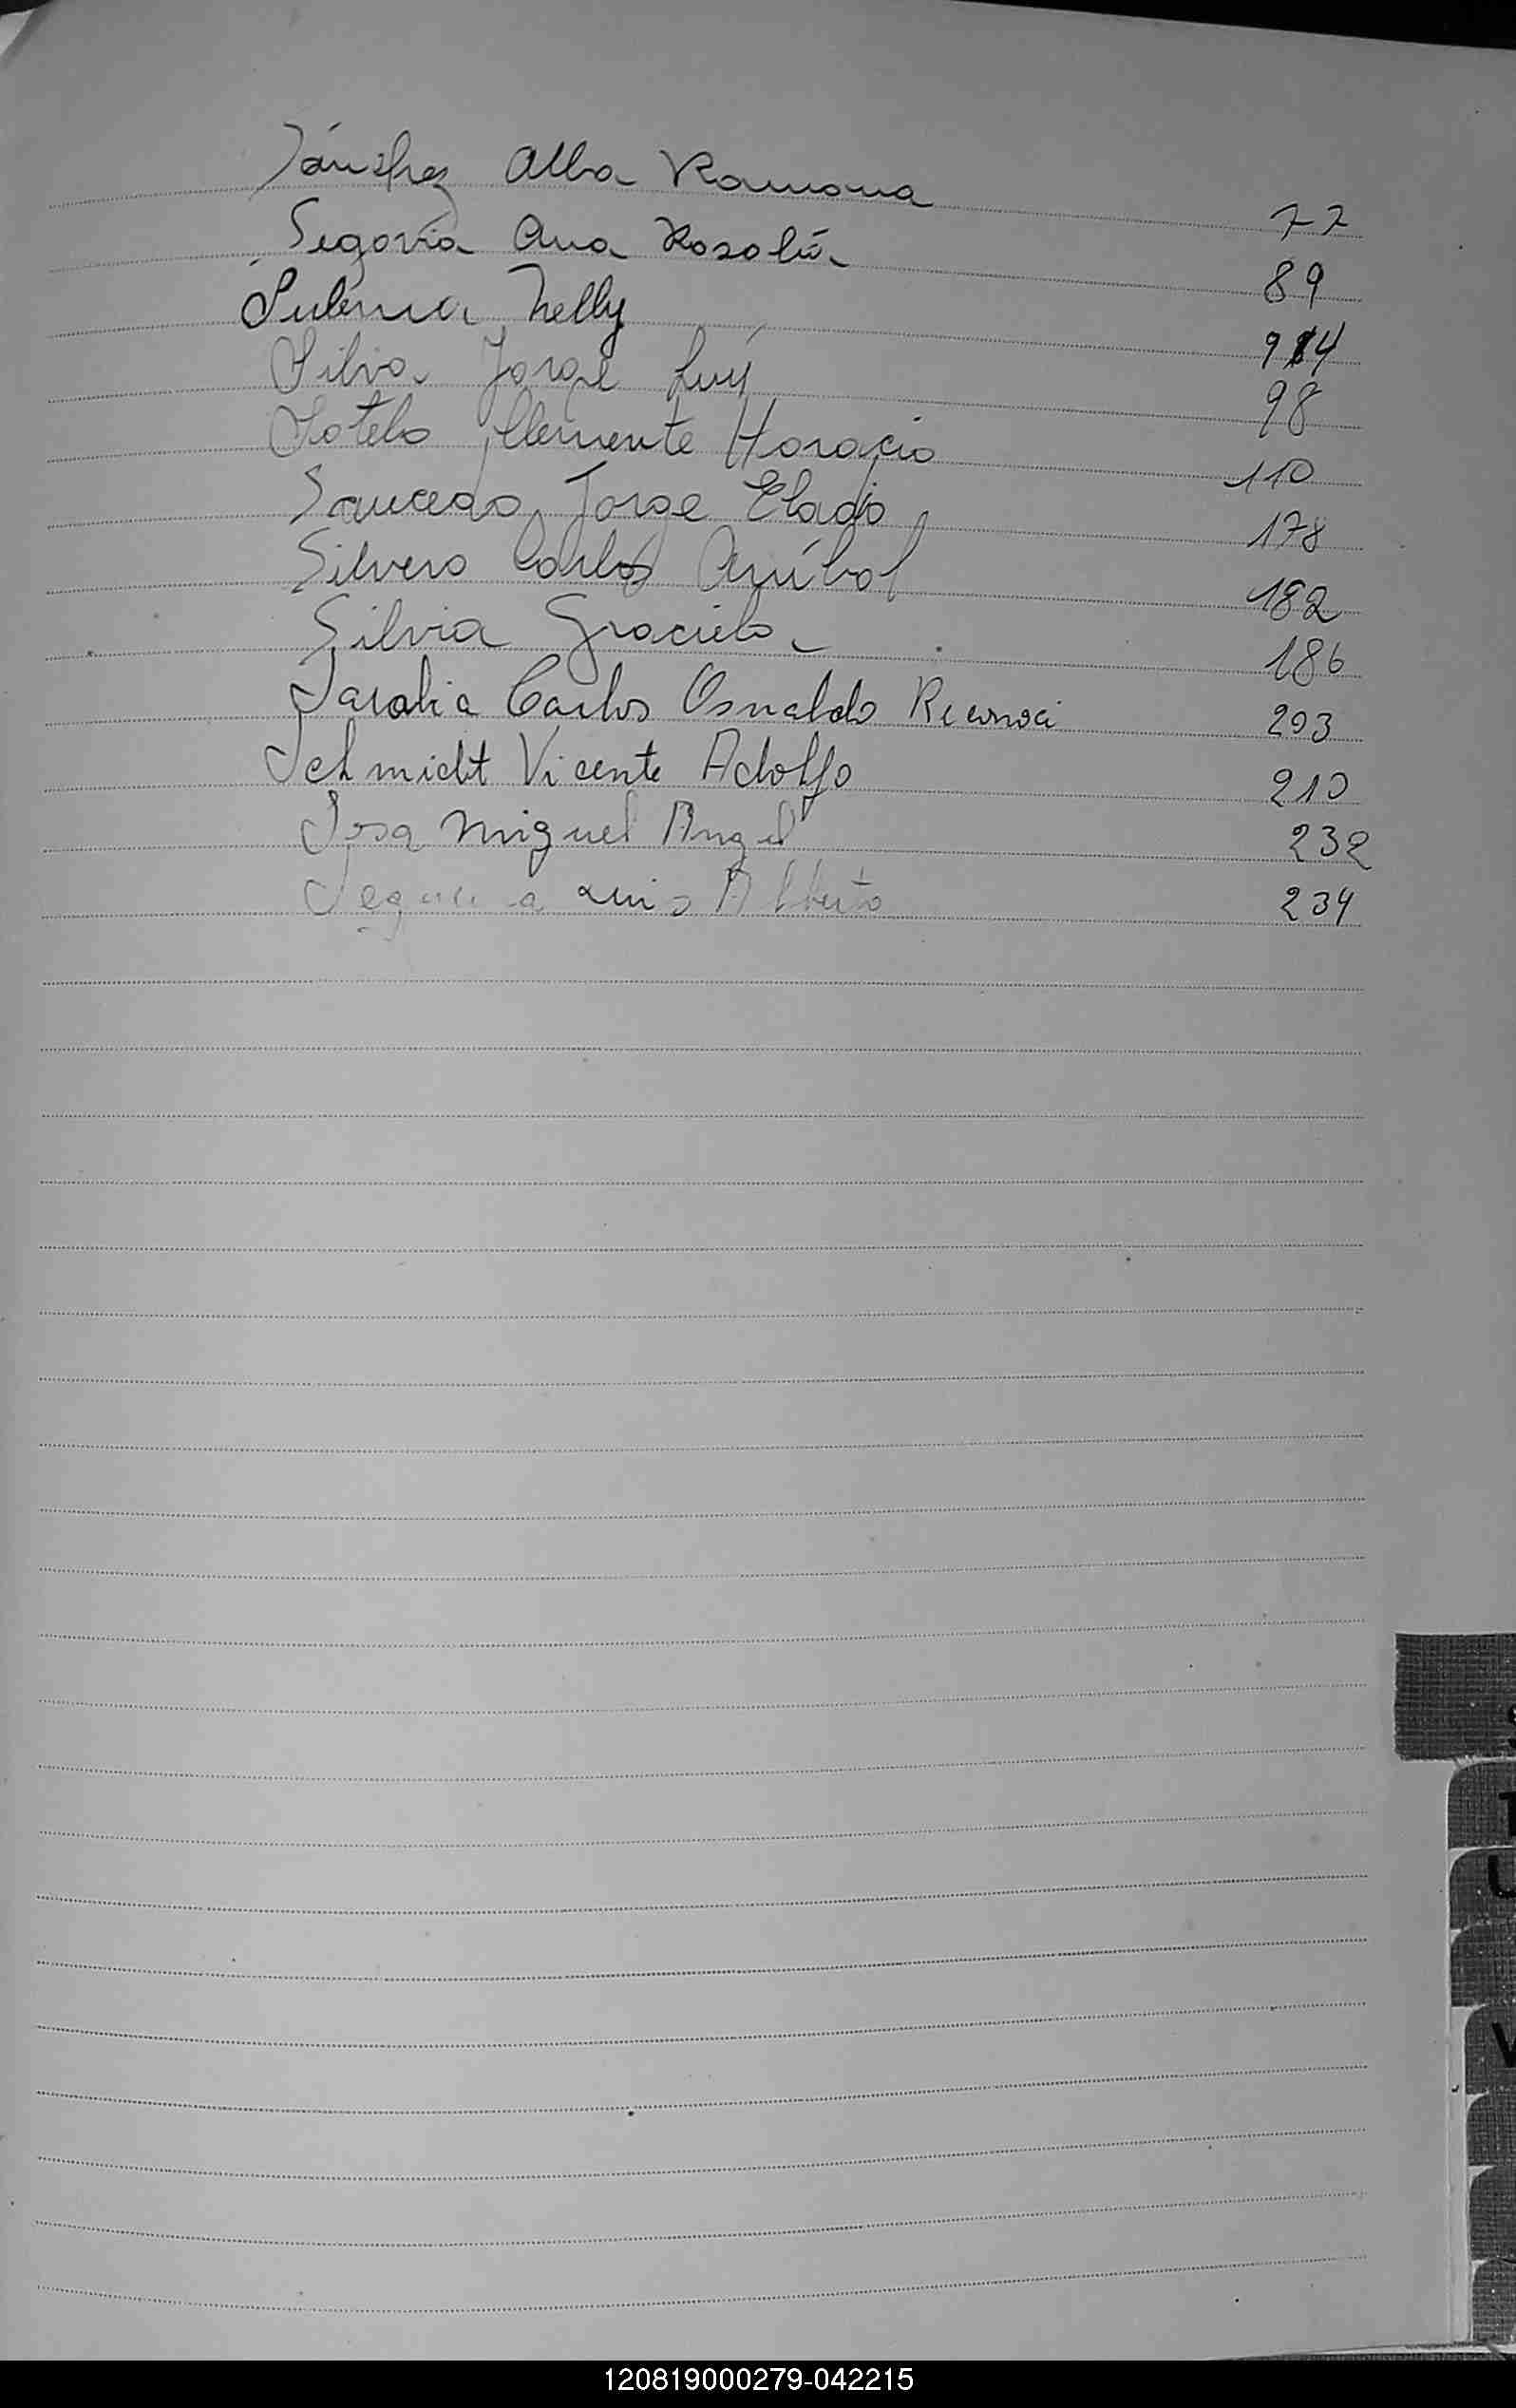 Sánchez Alba Ramona 77
Segovia Ana Rosalía 89
Nelly 94
Silva Jorge Luis 98
Sotelo Clemente Horacio 110
Saucedo Jorge Eladio 178
Silvero Carlos Aníbal 182
Silvia Graciela 186
Sarabia Carlos Osnaldo 203
Schmidt Vicente Adolfo 210
Sosa Miguel Angel 232
Luis Alberto 234
S
T
U
V
120819000279-042215